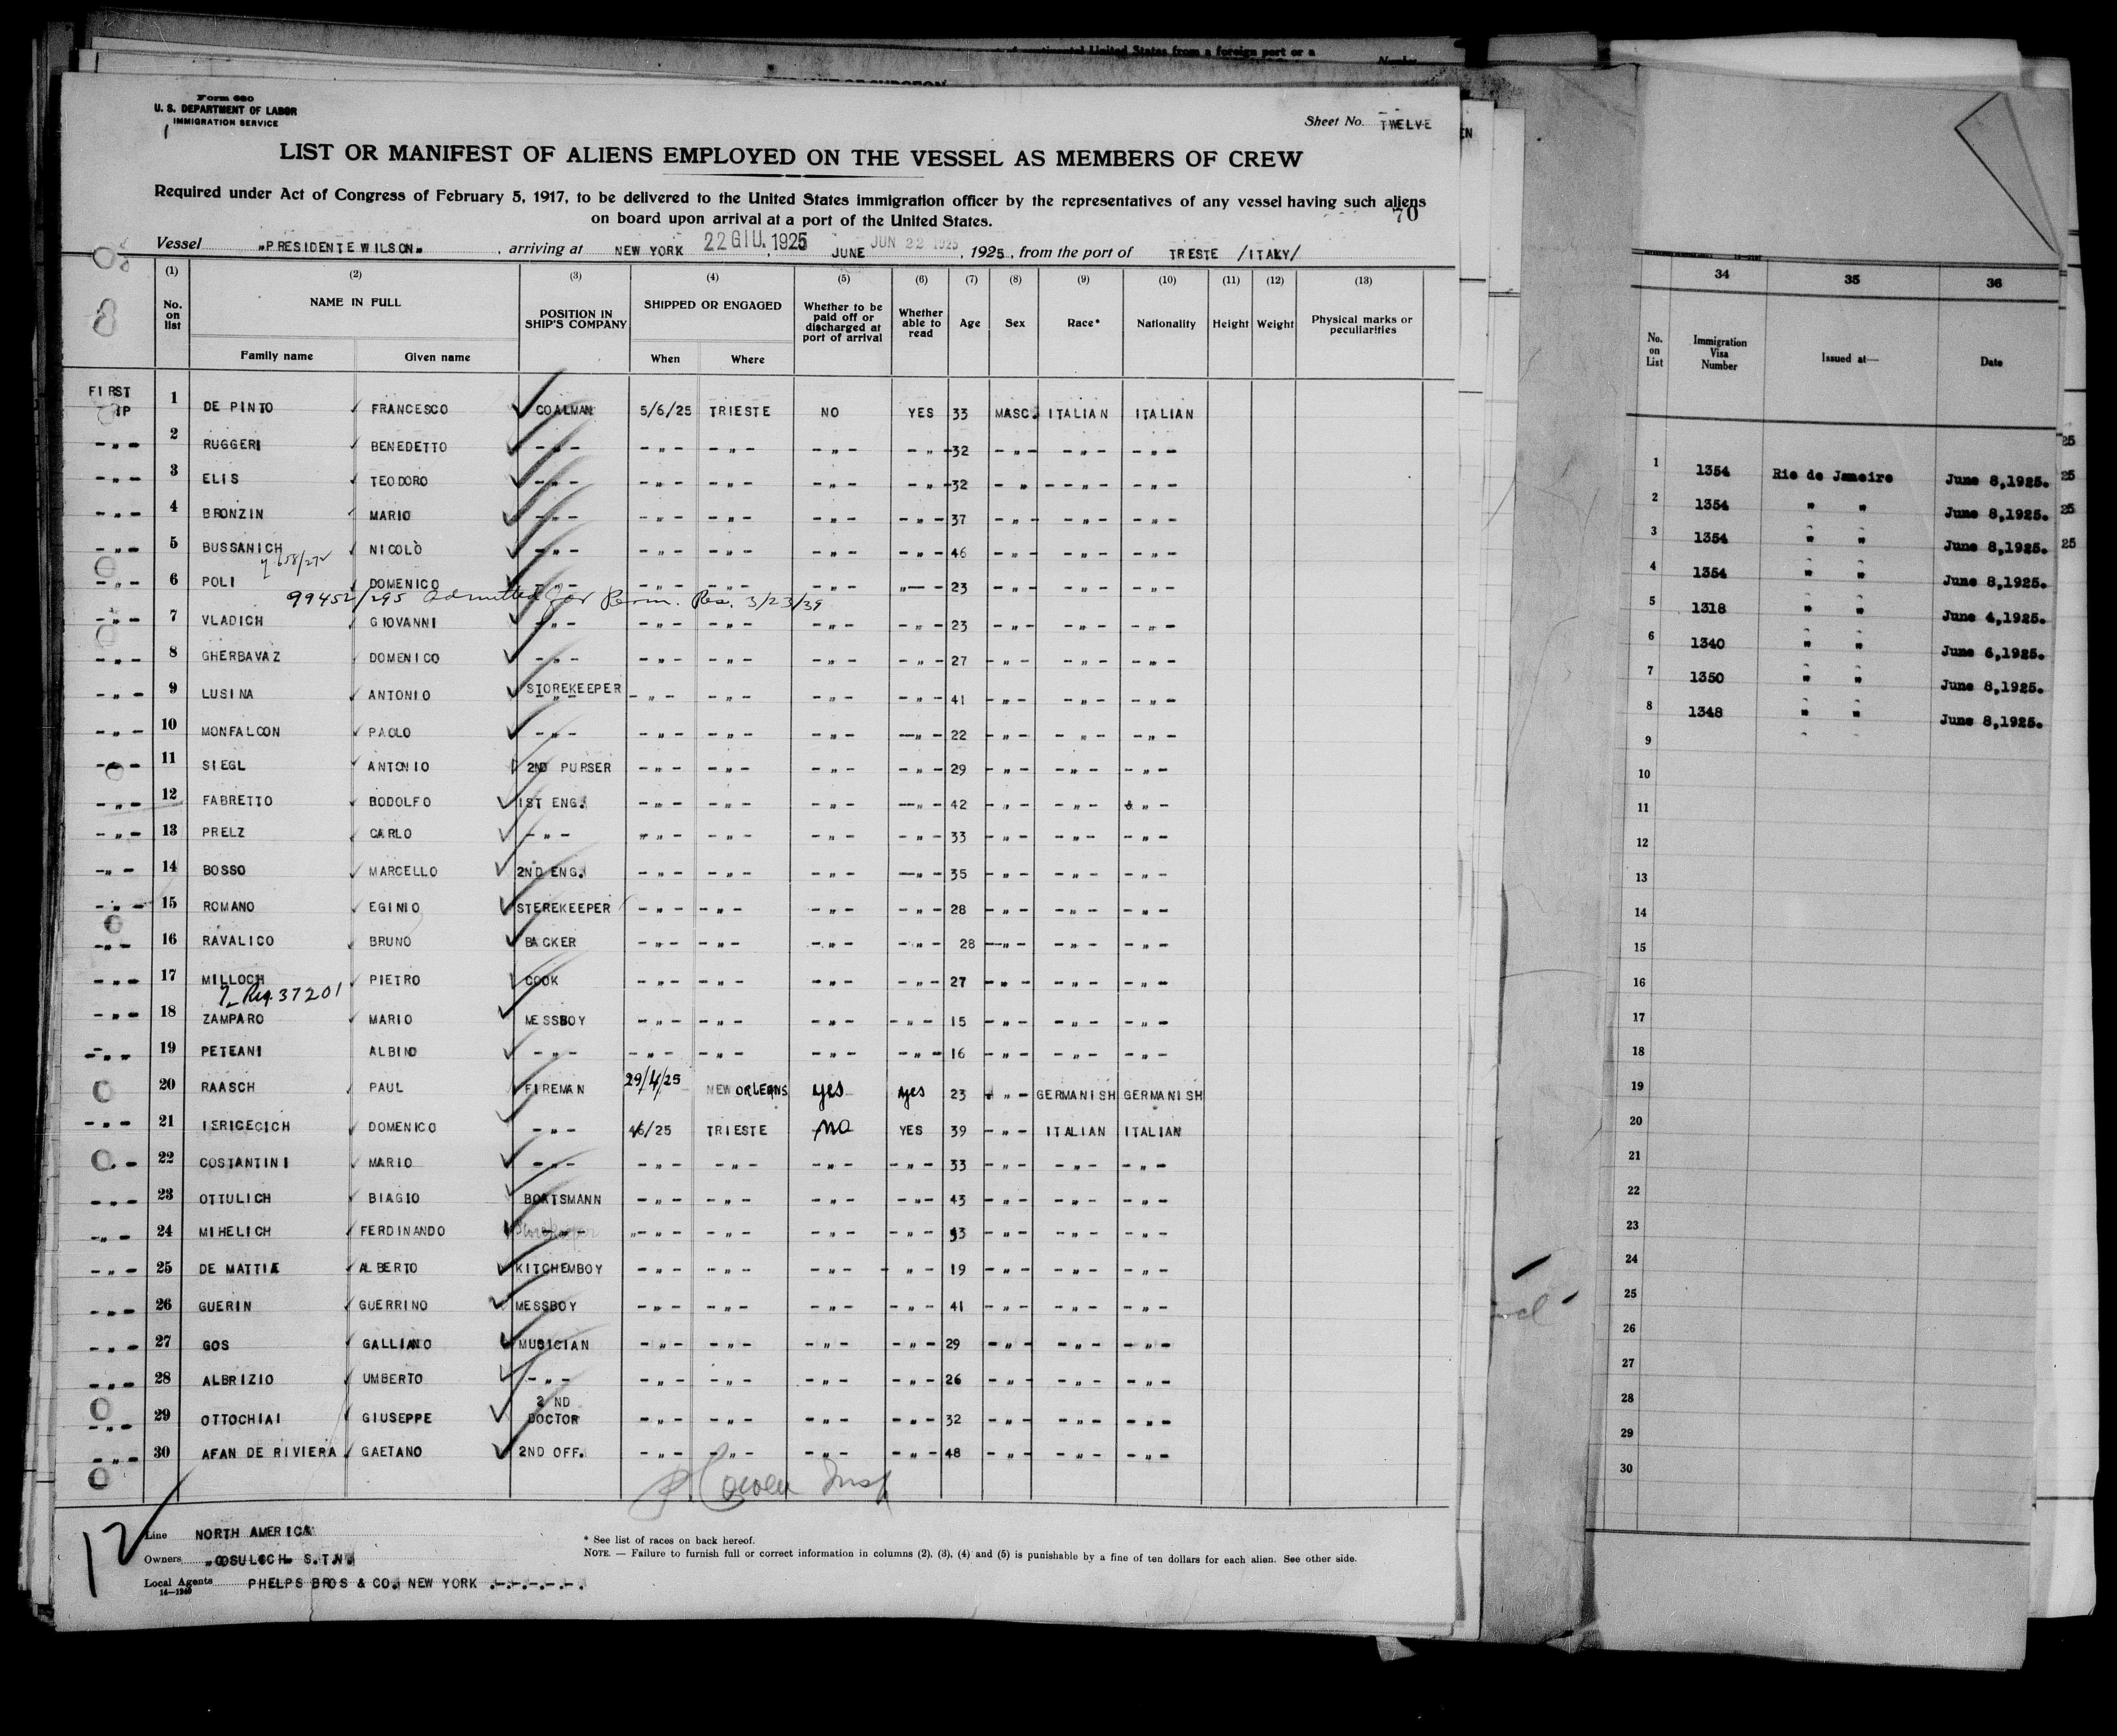 of continental United States from a foreign port or a
Form 680
U. S. DEPARTMENT OF LABOR
IMMIGRATION SERVICE
Sheet No. TWELVE
LIST OR MANIFEST OF ALIENS EMPLOYED ON THE VESSEL AS MEMBERS OF CREW
Required under Act of Congress of February 5, 1917, to be delivered to the United States immigration officer by the representatives of any vessel having such aliens
on board upon arrival at a port of the United States.
70
Vessel "PRESIDENTE WILSON" , arriving at NEW YORK 22 GIU. 1925 JUNE JUN 22 1925 , 1925, from the port of TRESTE /ITALY/
(1) (2) (3) (4) (5) (6) (7) (8) (9) (10) (11) (12) (13)
No. on list NAME IN FULL Family name Given name POSITION IN SHIP'S COMPANY SHIPPED OR ENGAGED When Where Whether to be paid off or discharged at port of arrival Whether able to read Age Sex Race* Nationality Height Weight Physical marks or peculiarities
FIRST
1 DE PINTO FRANCESCO COALMAN 5/6/25 TRIESTE NO YES 33 MASC. ITALIAN ITALIAN
-"- 2 RUGGERI BENEDETTO -"- -"- -"- -"- -"- 32 -"- -"- -"-
-"- 3 ELIS TEODORO -"- -"- -"- -"- -"- 32 -"- -"- -"-
-"- 4 BRONZIN MARIO -"- -"- -"- -"- -"- 37 -"- -"- -"-
-"- 5 BUSSANICH NICOLÒ -"- -"- -"- -"- -"- 46 -"- -"- -"-
-"- 6 POLI DOMENICO -"- -"- -"- -"- -"- 23 -"- -"- -"-
99452/295 Admitted for Perm. Res. 3/23/39
-"- 7 VLADICH GIOVANNI -"- -"- -"- -"- -"- 23 -"- -"- -"-
-"- 8 GHERBAVAZ DOMENICO -"- -"- -"- -"- -"- 27 -"- -"- -"-
-"- 9 LUSINA ANTONIO STOREKEEPER -"- -"- -"- -"- 41 -"- -"- -"-
-"- 10 MONFALCON PAOLO -"- -"- -"- -"- -"- 22 -"- -"- -"-
-"- 11 SIEGL ANTONIO 2ND PURSER -"- -"- -"- -"- 29 -"- -"- -"-
-"- 12 FABRETTO RODOLFO 1ST ENG. -"- -"- -"- -"- 42 -"- -"- -"-
-"- 13 PRELZ CARLO -"- -"- -"- -"- -"- 33 -"- -"- -"-
-"- 14 BOSSO MARCELLO 2ND ENG. -"- -"- -"- -"- 35 -"- -"- -"-
-"- 15 ROMANO EGINIO STEREKEEPER -"- -"- -"- -"- 28 -"- -"- -"-
-"- 16 RAVALICO BRUNO BACKER -"- -"- -"- -"- 28 -"- -"- -"-
-"- 17 MILLOCH PIETRO COOK -"- -"- -"- -"- 27 -"- -"- -"-
Reg. 37201
-"- 18 ZAMPARO MARIO MESSBOY -"- -"- -"- -"- 15 -"- -"- -"-
-"- 19 PETEANI ALBINO -"- -"- -"- -"- -"- 16 -"- -"- -"-
20 RAASCH PAUL FIREMAN 29/4/25 NEW ORLEANS yes yes 23 -"- GERMANISH GERMANISH
-"- 21 IERICECICH DOMENICO -"- 4/6/25 TRIESTE NO YES 39 -"- ITALIAN ITALIAN
-"- 22 COSTANTINI MARIO -"- -"- -"- -"- -"- 33 -"- -"- -"-
-"- 23 OTTULICH BIAGIO BOATSMANN -"- -"- -"- -"- 43 -"- -"- -"-
-"- 24 MIHELICH FERDINANDO Storekeeper -"- -"- -"- -"- 53 -"- -"- -"-
-"- 25 DE MATTIA ALBERTO KITCHEMBOY -"- -"- -"- -"- 19 -"- -"- -"-
-"- 26 GUERIN GUERRINO MESSBOY -"- -"- -"- -"- 41 -"- -"- -"-
-"- 27 GOS GALLIANO MUSICIAN -"- -"- -"- -"- 29 -"- -"- -"-
-"- 28 ALBRIZIO UMBERTO -"- -"- -"- -"- -"- 26 -"- -"- -"-
-"- 29 OTTOCHIAI GIUSEPPE 2 ND DOCTOR -"- -"- -"- -"- 32 -"- -"- -"-
-"- 30 AFAN DE RIVIERA GAETANO 2ND OFF. -"- -"- -"- -"- 48 -"- -"- -"-
12
Line NORTH AMERICA
Owners "COSULICH" S.T.N.
Local Agents PHELPS BROS & CO. NEW YORK .-.-.-.-.
14—1240
* See list of races on back hereof.
NOTE. — Failure to furnish full or correct information in columns (2), (3), (4) and (5) is punishable by a fine of ten dollars for each alien. See other side.
34 35 36
No. on List Immigration Visa Number Issued at— Date
1 1354 Rio de Janeiro June 8,1925.
2 1354 " " June 8,1925.
3 1354 " " June 8,1925.
4 1354 " " June 8,1925.
5 1318 " " June 4,1925.
6 1340 " " June 6,1925.
7 1350 " " June 8,1925.
8 1348 " " June 8,1925.
9
10
11
12
13
14
15
16
17
18
19
20
21
22
23
24
25
26
27
28
29
30